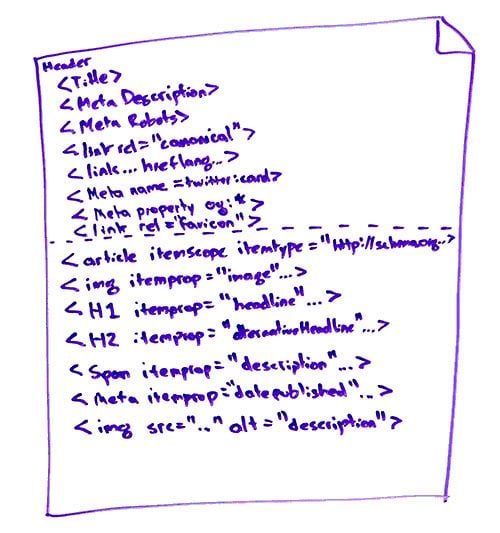 Header
<Title>
<Meta Description>
<Meta Robots>
<link rel="canonical">
<link... hreflang...>
<Meta name=twitter:card>
<Meta property og:*>
<link rel="favicon">
<article itemscope itemtype="http://schema.org..>
<img itemprop="image"...>
<H1 itemprop="headline"...>
<H2 itemprop="alternativeHeadline"...>
<Span itemprop="description"...>
<Meta itemprop="datepublished"...>
<img src=".." alt="description">